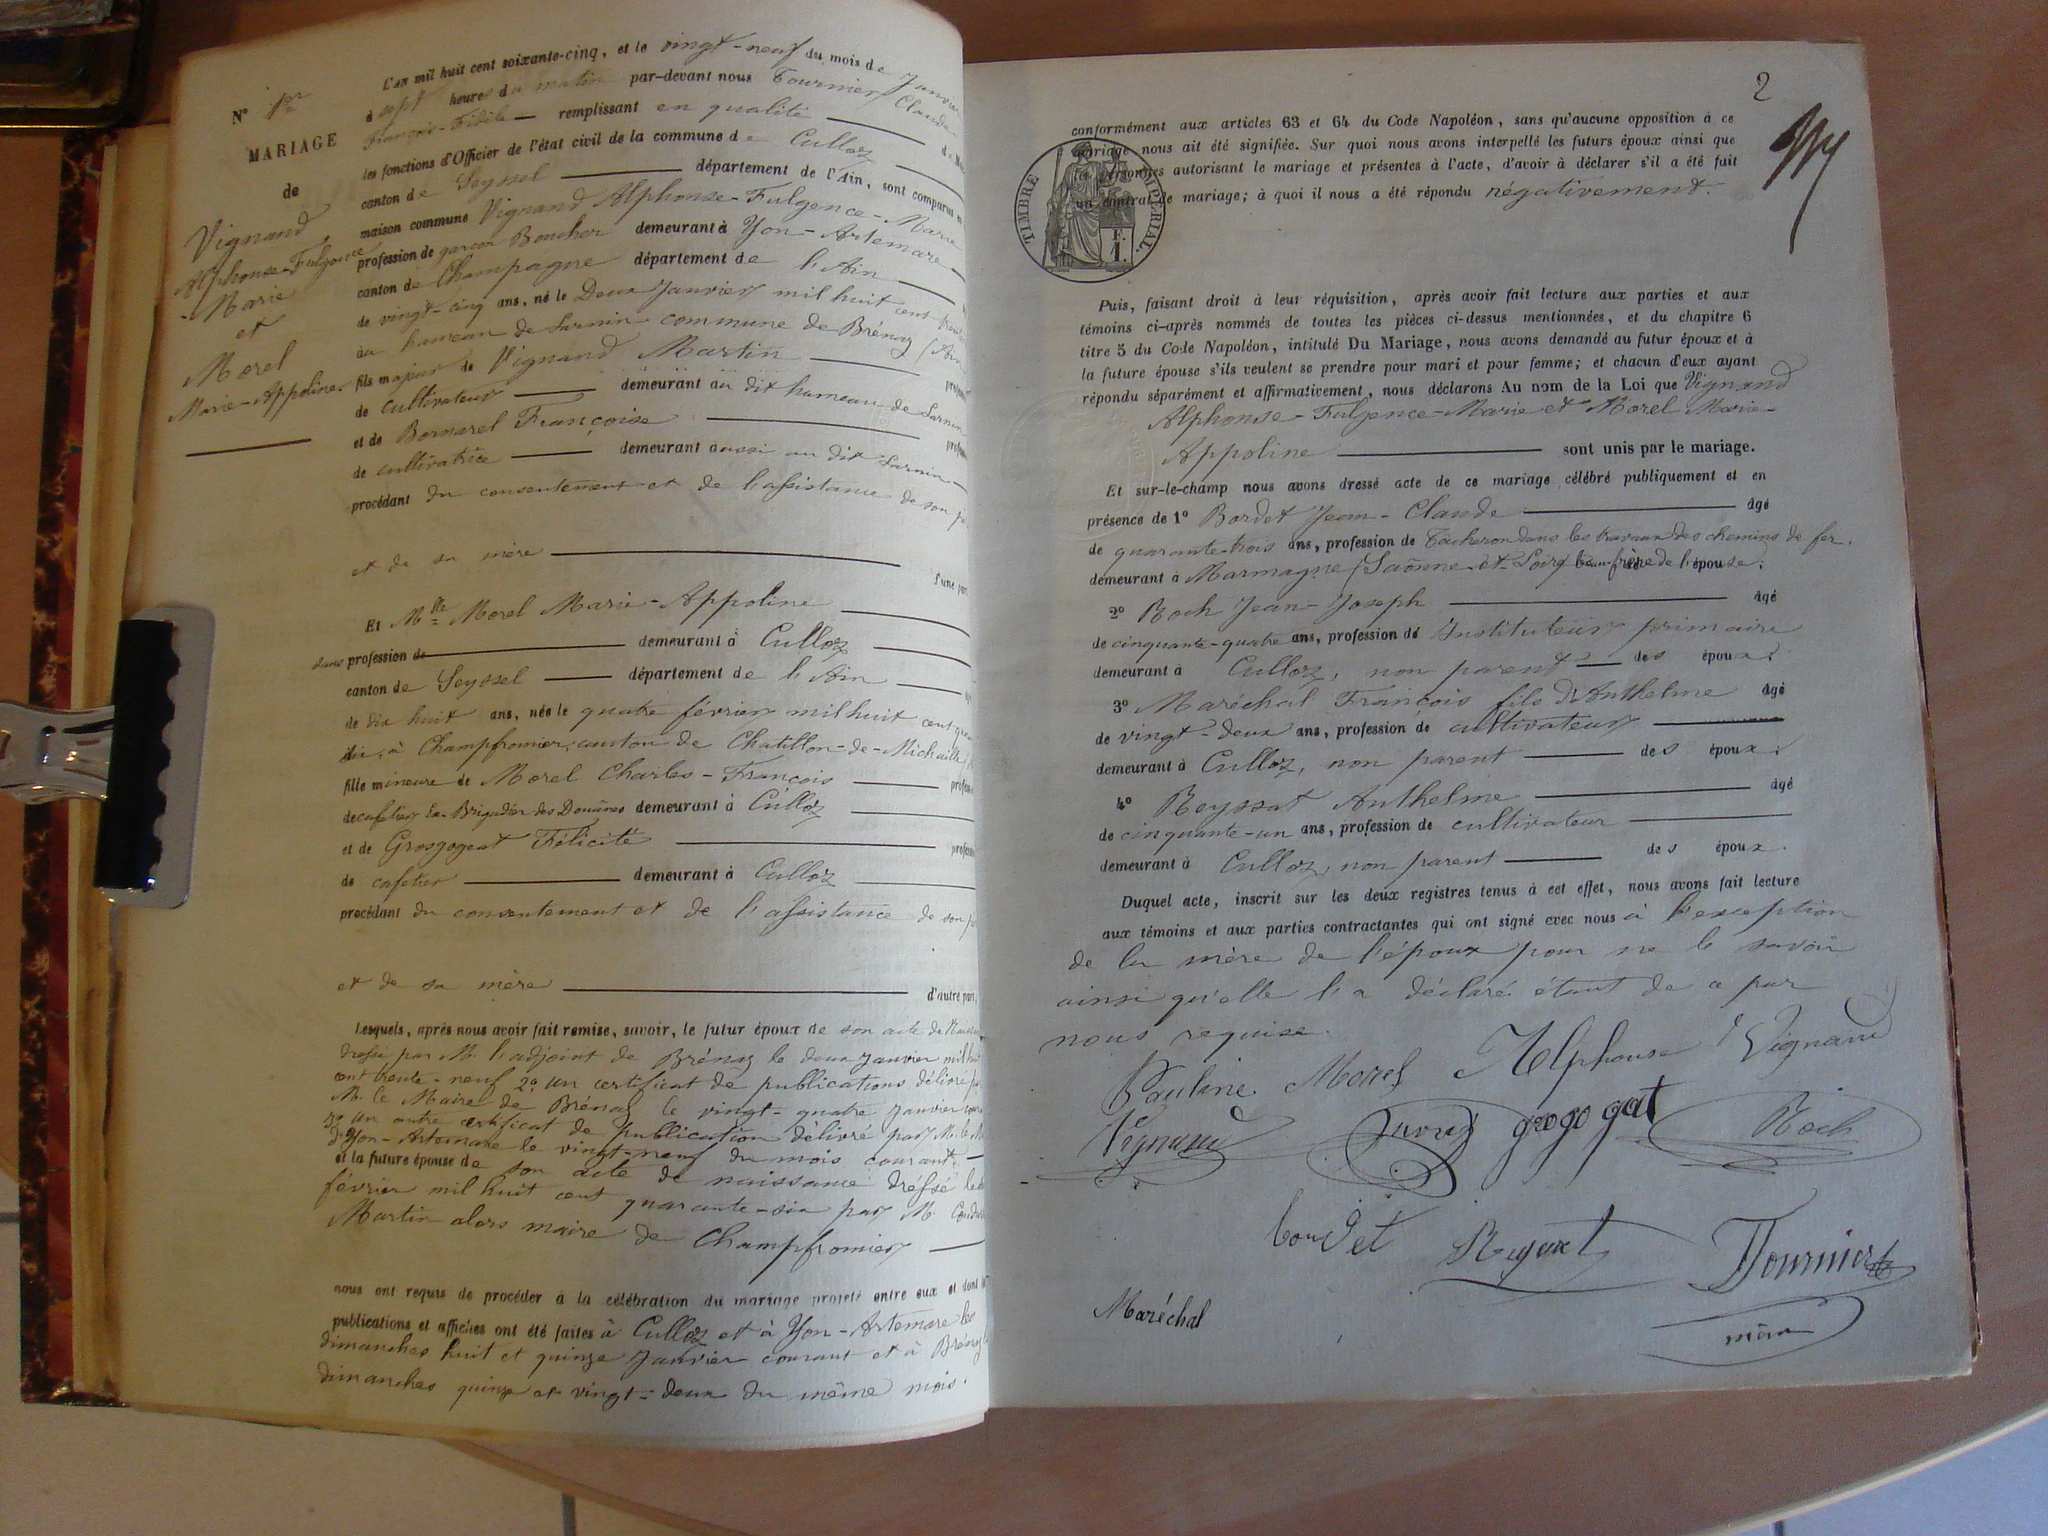 N° 1er
MARIAGE
de
Vignand
Alphonse-Fulgence
-Marie
et
Morel
Marie-Appoline
L'an mil huit cent soixante-cinq, et le vingt-neuf du mois de Janvier
à sept heures du matin par-devant nous Tournier Claude
François-Fidèle — remplissant en qualité
les fonctions d'Officier de l'état civil de la commune de Culloz
canton de Seyssel département de l'Ain, sont comparus
maison commune Vignand Alphonse-Fulgence-Marie
profession de garçon Boucher demeurant à Yon-Artemare
canton de Champagne département de l'Ain
de vingt-cinq ans, né le Deux Janvier mil huit cent
au hameau de commune de Brénaz (Ain
fils majeur de Vignand Martin
de cultivateur demeurant au dit hameau de
et de Bornarel Françoise
de cultivatrice demeurant aussi au dit
procédant du consentement et de l'assistance de son
et de sa mère
d'une part
Et Mlle Morel Marie-Appoline
sans profession de demeurant à Culloz
canton de Seyssel département de l'Ain
de dix huit ans, née le quatre février mil huit cent
à Champfromier, canton de Chatillon-de-Michaille
fille mineure de Morel Charles-François
de cafetier Ex-Brigadier des Douanes demeurant à Culloz
et de Grosgogeat Félicité
de cafetier demeurant à Culloz
procédant du consentement et de l'assistance de son
et de sa mère
d'autre part,
Lesquels, après nous avoir fait remise, savoir, le futur époux de son acte de
dressé par M. l'adjoint de Brénaz le deux Janvier mil huit
cent trente-neuf 2° un certificat de publications délivré
M. le Maire de Brénaz le vingt-quatre Janvier
3° un autre certificat de publication délivré par M. le
d'Yon-Artemare le vingt-neuf du mois courant
et la future épouse de son acte de naissance dressé le
février mil huit cent quarante-six par M.
Martin alors maire de Champfromier
nous ont requis de procéder à la célébration du mariage projeté entre eux et dont
publications et affiches ont été faites à Culloz et à Yon-Artemare les
dimanches huit et quinze Janvier courant et à Brénaz
dimanches quinze et vingt-deux du même mois.
2
conformément aux articles 63 et 64 du Code Napoléon, sans qu'aucune opposition à ce
mariage nous ait été signifiée. Sur quoi nous avons interpellé les futurs époux ainsi que
les personnes autorisant le mariage et présentes à l'acte, d'avoir à déclarer s'il a été fait
un contrat de mariage; à quoi il nous a été répondu négativement
TIMBRE IMPÉRIAL.
F.
1.
Puis, faisant droit à leur réquisition, après avoir fait lecture aux parties et aux
témoins ci-après nommés de toutes les pièces ci-dessus mentionnées, et du chapitre 6
titre 5 du Code Napoléon, intitulé Du Mariage, nous avons demandé au futur époux et à
la future épouse s'ils veulent se prendre pour mari et pour femme; et chacun d'eux ayant
répondu séparément et affirmativement, nous déclarons Au nom de la Loi que Vignand
Alphonse-Fulgence-Marie et Morel Marie-
Appoline sont unis par le mariage.
Et sur-le-champ nous avons dressé acte de ce mariage célébré publiquement et en
présence de 1° Bordet Jean-Claude âgé
de quarante-trois ans, profession de Tacheron dans les travaux des chemins de fer.
demeurant à Marmagne (Saônne-et-Loire) beau-frère de l'épouse.
2° Roch Jean-Joseph âgé
de cinquante-quatre ans, profession de Instituteur primaire
demeurant à Culloz, non parent des époux.
3° Maréchal François fils d'Anthelme âgé
de vingt-deux ans, profession de cultivateur
demeurant à Culloz, non parent des époux.
4° Reyssat Anthelme âgé
de cinquante-un ans, profession de cultivateur
demeurant à Culloz, non parent des époux.
Duquel acte, inscrit sur les deux registres tenus à cet effet, nous avons fait lecture
aux témoins et aux parties contractantes qui ont signé avec nous à l'exception
de la mère de l'époux pour ne le savoir
ainsi qu'elle l'a déclaré étant de ce par
nous requise.
Pauline Morel Alphonse Vignand
Vignand grogogat Roch
bordet Tournier
Maréchal